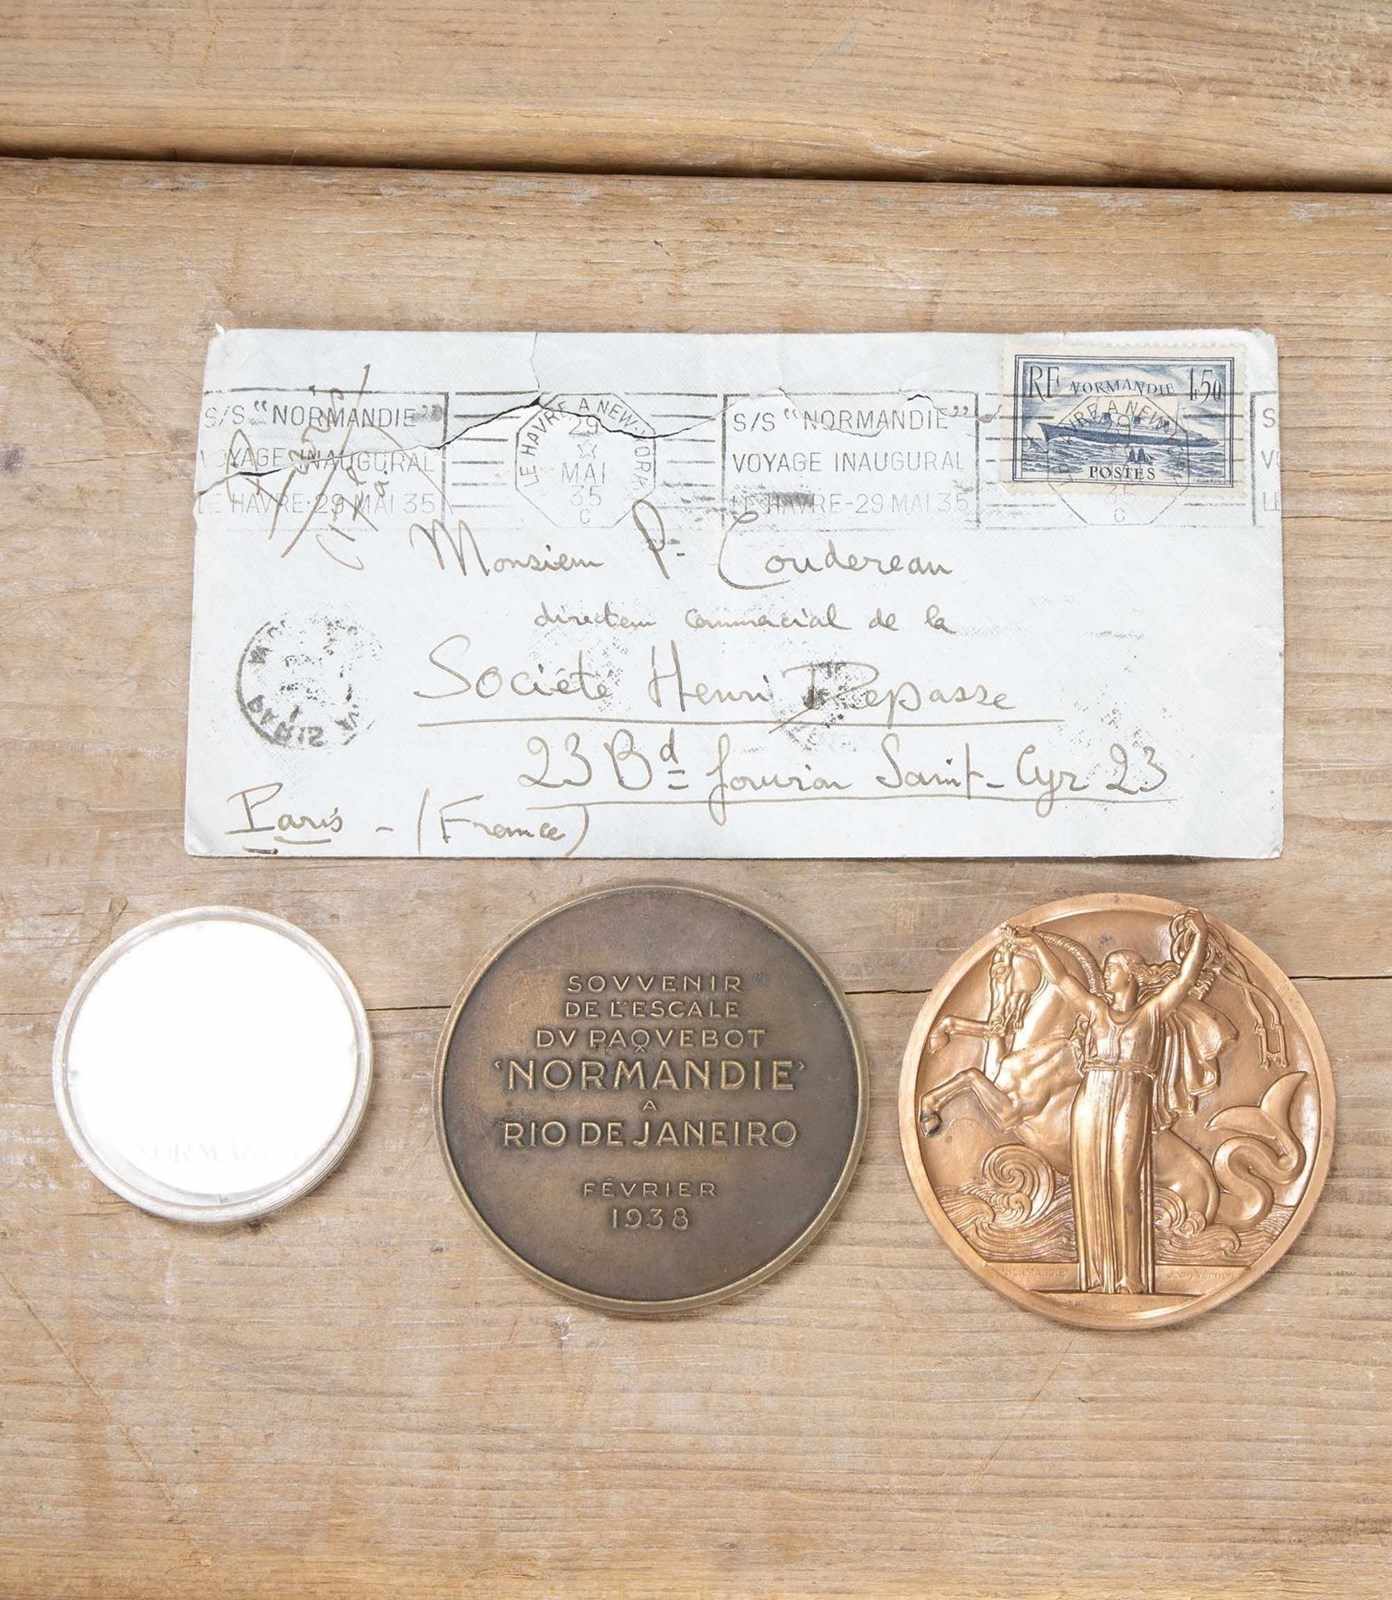 S/S "NORMANDIE"
VOYAGE INAUGURAL
LE HAVRE-29 MAI 35
LE HAVRE A NEW-YORK
29
MAI
35
C
S/S "NORMANDIE"
VOYAGE INAUGURAL
LE HAVRE-29 MAI 35
RF NORMANDIE 1,50
POSTES
HAVRE A NEW-Y
35
C
S
V
LE
Monsieur P. Coudereau
directeur commercial de la
Société Henri Repasse
23 Bd Gouvion Saint-Cyr 23
Paris - (France)
PARIS
SOVVENIR
DE L'ESCALE
DV PAQVEBOT
'NORMANDIE'
A
RIO DE JANEIRO
FÉVRIER
1938